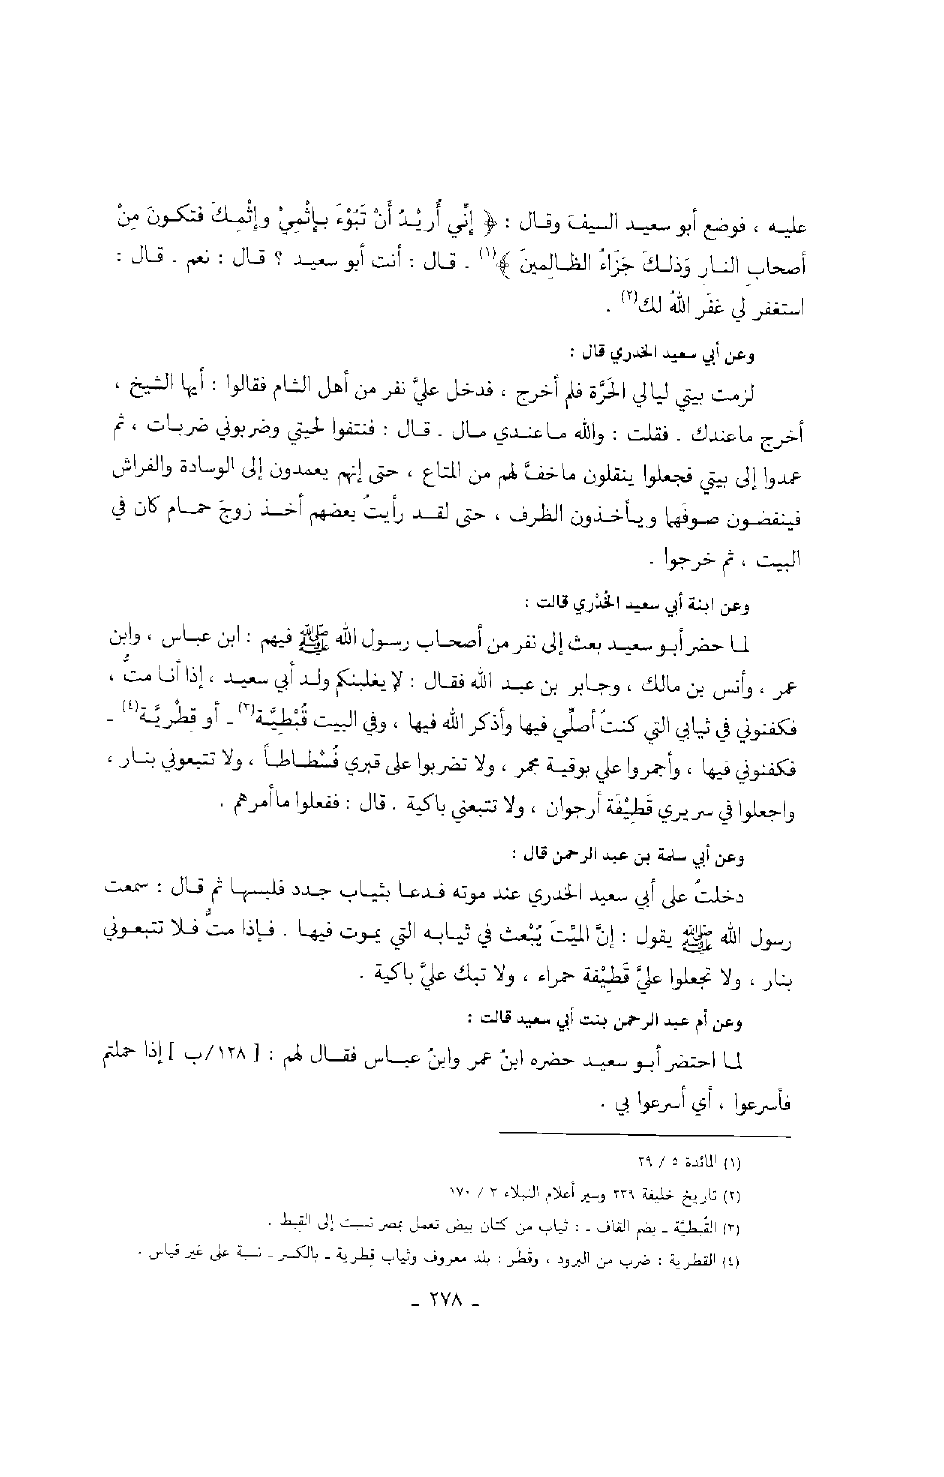 عليه ، فوضع أبو سعيد السيفَ وقال : ﴿ إنِّي أُرِيْدُ أَنْ تَبُوْءَ بِإِثْمِيْ وإثْمِكَ فتكونَ مِنْ
أصحابِ النار وَذلكَ جَزَاءُ الظالمينَ ﴾(١) . قال : أنت أبو سعيد ؟ قال : نعم . قال :
استغفر لي غفَر اللهُ لك(٢) .
وعن أبي سعيد الخدري قال :
لزمت بيتي ليالي الحَرَّة فلم أخرج ، فدخل عليَّ نفر من أهل الشام فقالوا : أيها الشيخ ،
أخرج ماعندك . فقلت : والله ماعندي مال . قال : فنتفوا لحيتي وضربوني ضربات ، ثم
عمدوا إلى بيتي فجعلوا ينقلون ماخفَّ لهم من المتاع ، حتى إنهم يعمدون إلى الوسادة والفراش
فينفضون صوفها ويأخذون الظرف ، حتى لقد رأيتُ بعضهم أخذ زوجَ حمام كان في
البيت ، ثم خرجوا .
وعن ابنة أبي سعيد الخُدْري قالت :
لما حضر أبو سعيد بعث إلى نفر من أصحاب رسول الله ﷺ فيهم : ابن عباس ، وابن
عمر ، وأنس بن مالك ، وجابر بن عبد الله فقال : لا يغلبنكم ولد أبي سعيد ، إذا أنا متُّ ،
فكفنوني في ثيابي التي كنتُ أصلِّي فيها وأذكر الله فيها ، وفي البيت قُبْطِيَّة(٣) - أو قِطْرِيَّة(٤) -
فكفنوني فيها ، وأجمروا علي بوقية مجمر ، ولا تضربوا على قبري فُسْطاطاً ، ولا تتبعوني بنار ،
واجعلوا في سريري قَطِيْفَة أرجوان ، ولا تتبعني باكية . قال : ففعلوا ماأمرهم .
وعن أبي سلمة بن عبد الرحمن قال :
دخلتُ على أبي سعيد الخدري عند موته فدعا بثياب جدد فلبسها ثم قال : سمعت
رسول الله ﷺ يقول : إنَّ الميْتَ يُبْعث في ثيابه التي يموت فيها . فإذا متُّ فلا تتبعوني
بنار ، ولا تجعلوا عليَّ قَطِيْفة حمراء ، ولا تبك عليَّ باكية .
وعن أم عبد الرحمن بنت أبي سعيد قالت :
لما احتضر أبو سعيد حضره ابنُ عمر وابنُ عباس فقال لهم : [ ١٢٨/ب ] إذا حملتم
فأسرعوا ، أي أسرعوا بي .
(١) المائدة ٥ / ٢٩
(٢) تاريخ خليفة ٢٣٩ وسير أعلام النبلاء ٣ / ١٧٠
(٣) القُبطيّة - بضم القاف - : ثياب من كتان بيض تعمل بمصر نسبت إلى القبط .
(٤) القطرية : ضرب من البرود ، وقطر : بلد معروف وثياب قِطرية - بالكسر - نسبة على غير قياس .
- ٢٧٨ -